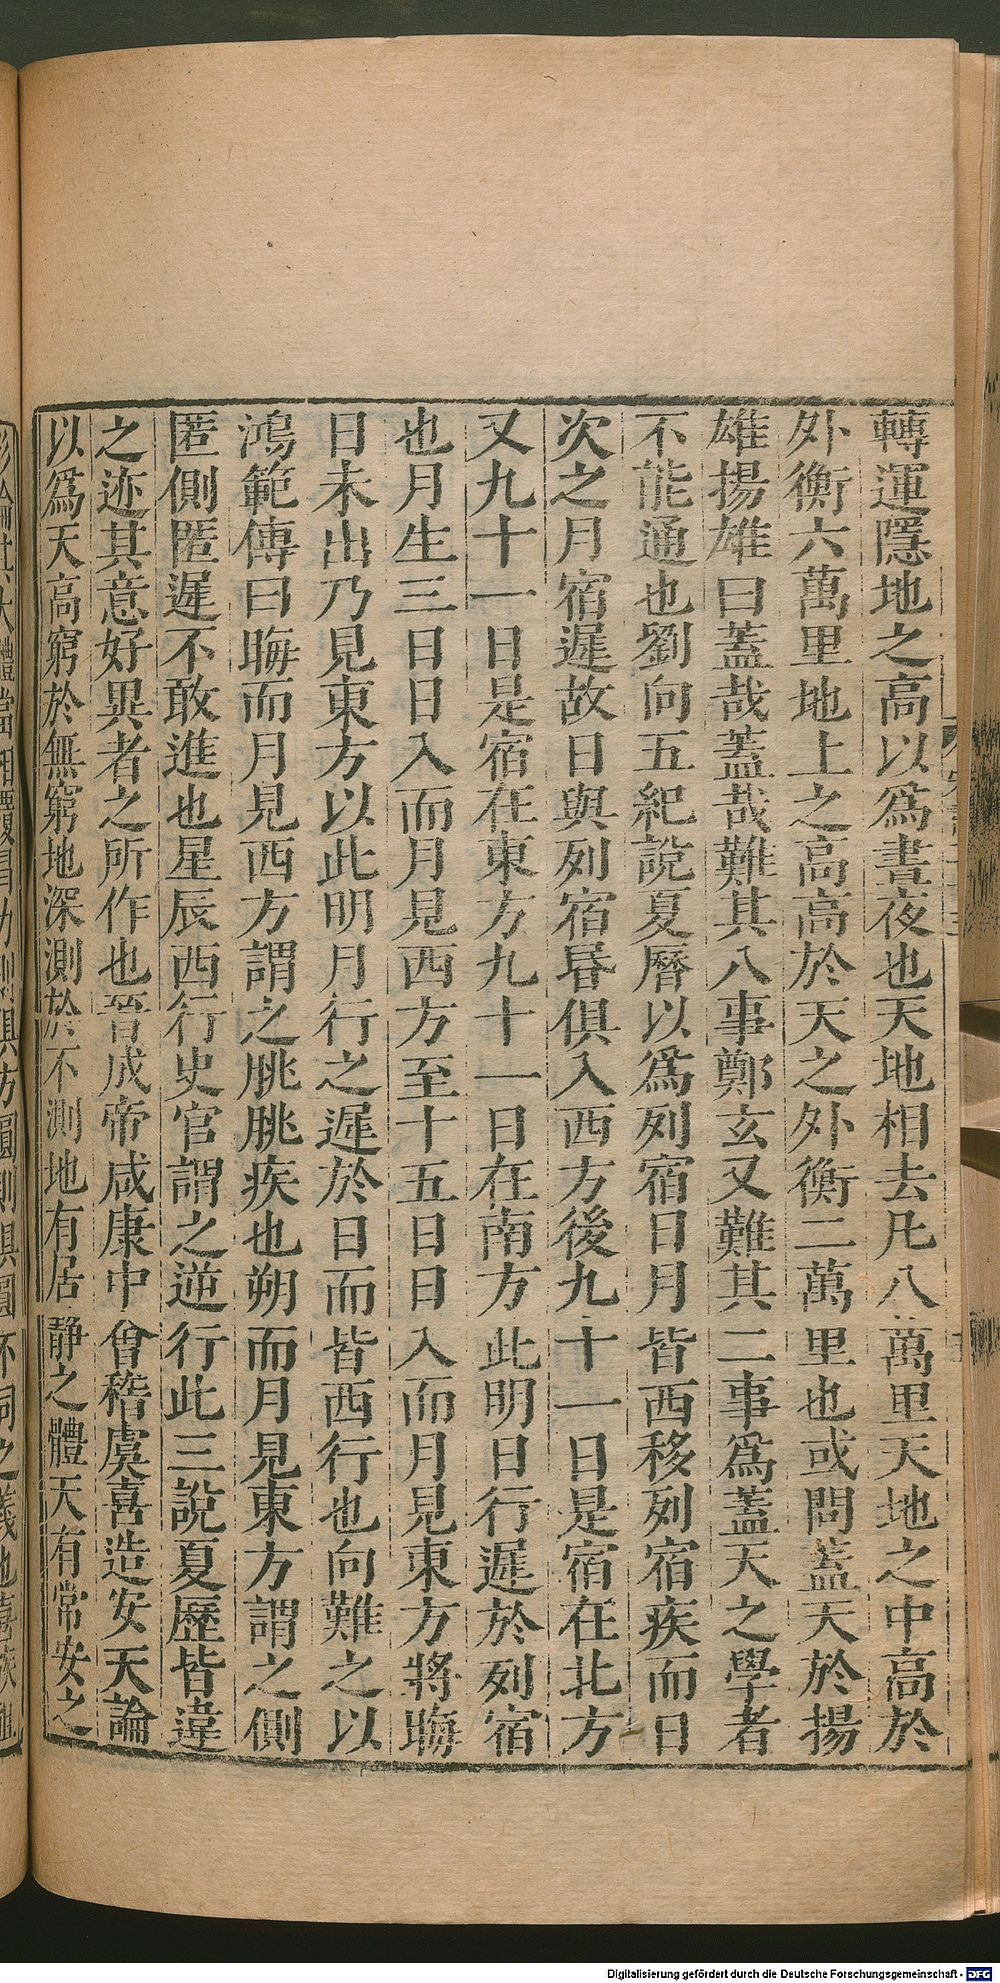 轉運隱地之高以爲晝夜也天地相去凡八萬里天地之中高於
外衡六萬里地上之高高於天之外衡二萬里也或問蓋天於揚
雄揚雄曰蓋哉蓋哉難其八事鄭玄又難其二事爲蓋天之學者
不能通也劉向五紀說夏曆以爲列宿日月皆西移列宿疾而日
次之月宿遲故日與列宿昏俱入西方後九十一日是宿在北方
又九十一日是宿在東方九十一日在南方此明日行遲於列宿
也月生三日日入而月見西方至十五日日入而月見東方將晦
日未出乃見東方以此明月行之遲於日而皆西行也向難之以
鴻範傳曰晦而月見西方謂之朓朓疾也朔而月見東方謂之側
匿側匿遲不敢進也星辰西行史官謂之逆行此三說夏歷皆違
之迹其意好異者之所作也晉成帝咸康中會稽虞喜造安天論
以爲天高窮於無窮地深測於不測地有居靜之體天有常安之
Digitalisierung gefördert durch die Deutsche Forschungsgemeinschaft - DFG